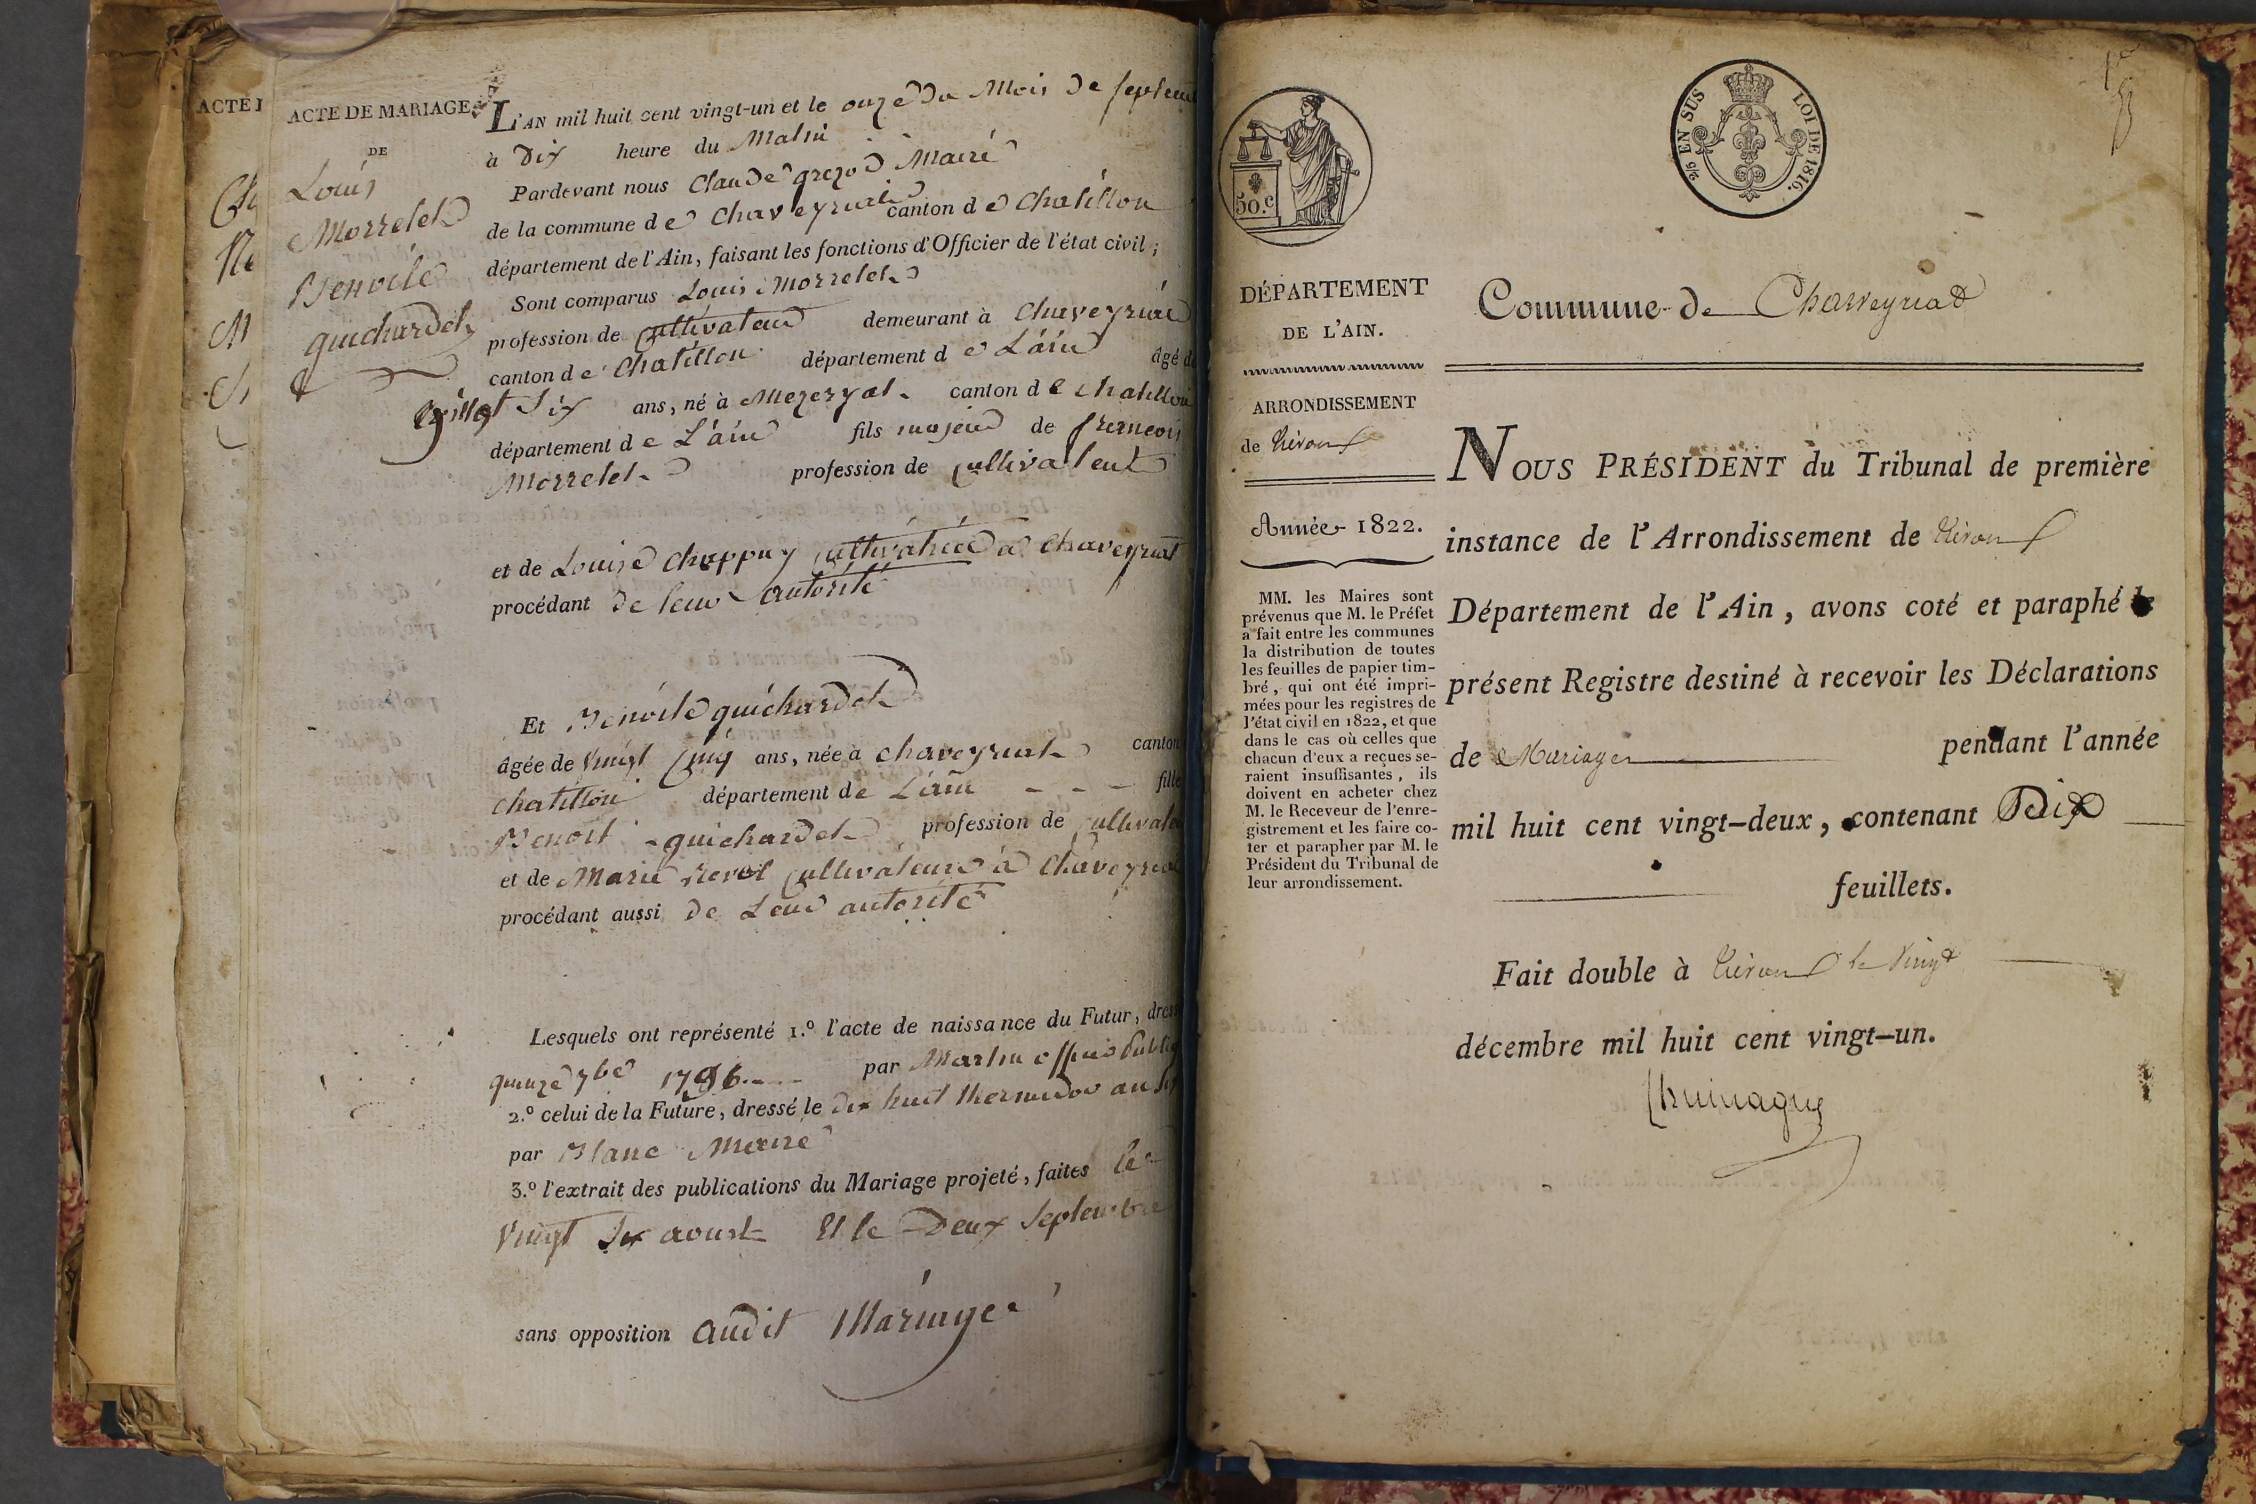 ACTE DE MARIAGE
DE
Louis
Morrelet
Benoite
guichardet
L'AN mil huit cent vingt-un et le onze du Mois de septem
à Dix heure du Matin
Pardevant nous Claude Maire
de la commune de Chaveyriat canton de Chatillon
département de l'Ain, faisant les fonctions d'Officier de l'état civil;
Sont comparus Louis Morrelet
profession de Cultivateur demeurant à Chaveyriat
canton de Chatillon département de L'ain âgé de
vingt Six ans, né à Mezeryat canton de chatillon
département de L'ain fils majeur de francois
Morrelet profession de Cultivateur
et de Louise Chappuy Cultivatrice a Chaveyriat
procédant de leur autorité
Et Benoite guichardet
âgée de vingt Cinq ans, née à chaveyriat canton
chatillon département de L'ain - - - fille
Benoit guichardet profession de Cultivateu
et de Marie revol Cultivateurs à Chaveyriat
procédant aussi de Leur autorité
Lesquels ont représenté 1.º l'acte de naissance du Futur, dress
quinze 7bre 1796 par Martin officier Public
2.º celui de la Future, dressé le dix huit thermidor an
par Blanc Maire
3.º l'extrait des publications du Mariage projeté, faites le
Vingt Six aoust Et le Deux Septembre
sans opposition audit Mariage
ACTE
2/5 EN SUS LOI DE 1816.
50.c
DÉPARTEMENT
DE L'AIN.
ARRONDISSEMENT
de Trévoux
Année 1822.
MM. les Maires sont
prévenus que M. le Préfet
a fait entre les communes
la distribution de toutes
les feuilles de papier tim-
bré, qui ont été impri-
mées pour les registres de
l'état civil en 1822, et que
dans le cas où celles que
chacun d'eux a reçues se-
raient insuffisantes, ils
doivent en acheter chez
M. le Receveur de l'enre-
gistrement et les faire co-
ter et parapher par M. le
Président du Tribunal de
leur arrondissement.
Commune de Chaveyriat
NOUS PRÉSIDENT du Tribunal de première
instance de l'Arrondissement de Trévoux
Département de l'Ain, avons coté et paraphé le
présent Registre destiné à recevoir les Déclarations
de Mariages pendant l'année
mil huit cent vingt-deux, contenant Dix
feuillets.
Fait double à Trévoux le Vingt
décembre mil huit cent vingt-un.